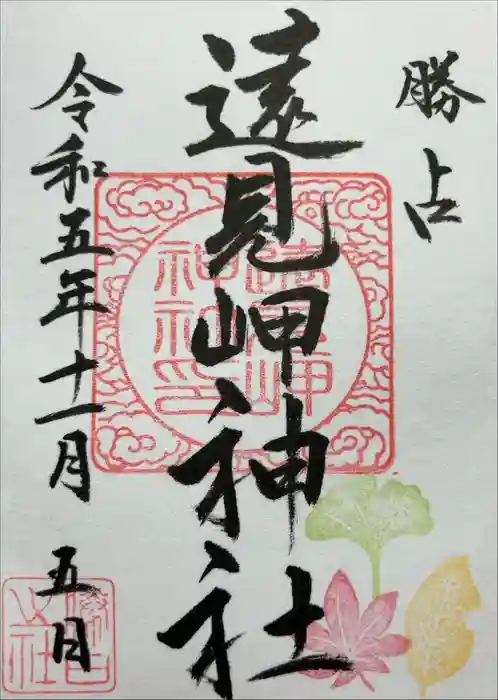 勝占
遠見岬神社
令和五年十一月五日
遠見岬神社印